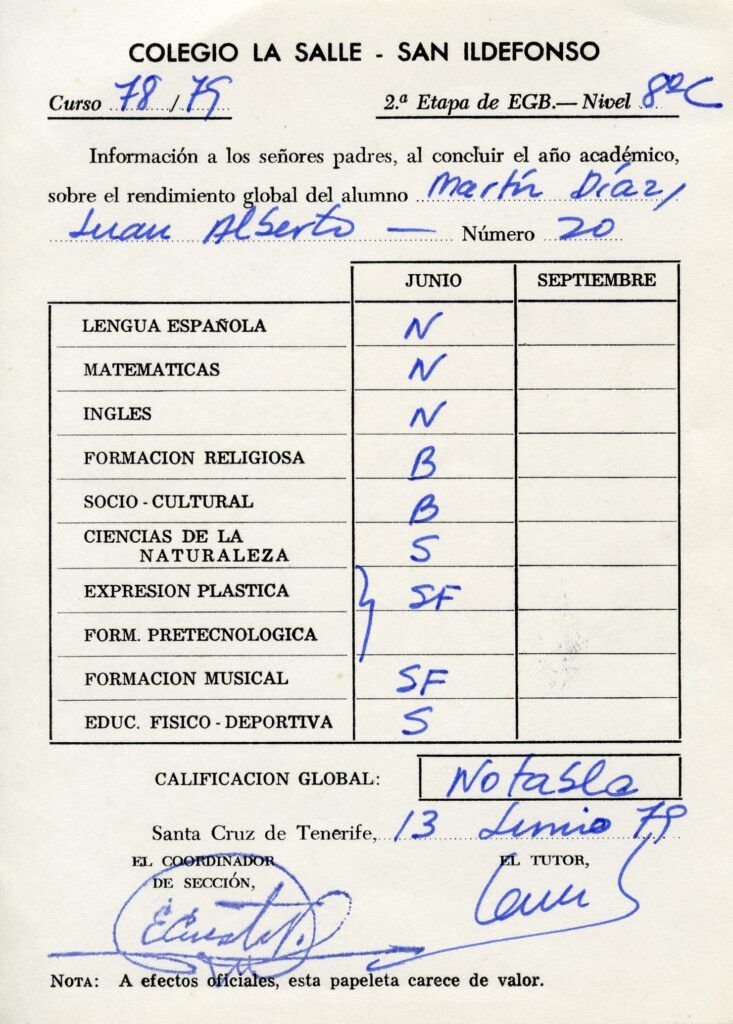 COLEGIO LA SALLE - SAN ILDEFONSO
Curso 78 / 79 2.ª Etapa de EGB.— Nivel 8º C
Información a los señores padres, al concluir el año académico,
sobre el rendimiento global del alumno Martín Díaz,
Juan Alberto — Número 20
JUNIO SEPTIEMBRE
LENGUA ESPAÑOLA N
MATEMATICAS N
INGLES N
FORMACION RELIGIOSA B
SOCIO - CULTURAL B
CIENCIAS DE LA
NATURALEZA S
EXPRESION PLASTICA SF
FORM. PRETECNOLOGICA
FORMACION MUSICAL SF
EDUC. FISICO - DEPORTIVA S
CALIFICACION GLOBAL: Notable
Santa Cruz de Tenerife, 13 Junio 79
EL COORDINADOR EL TUTOR,
DE SECCIÓN,
NOTA: A efectos oficiales, esta papeleta carece de valor.